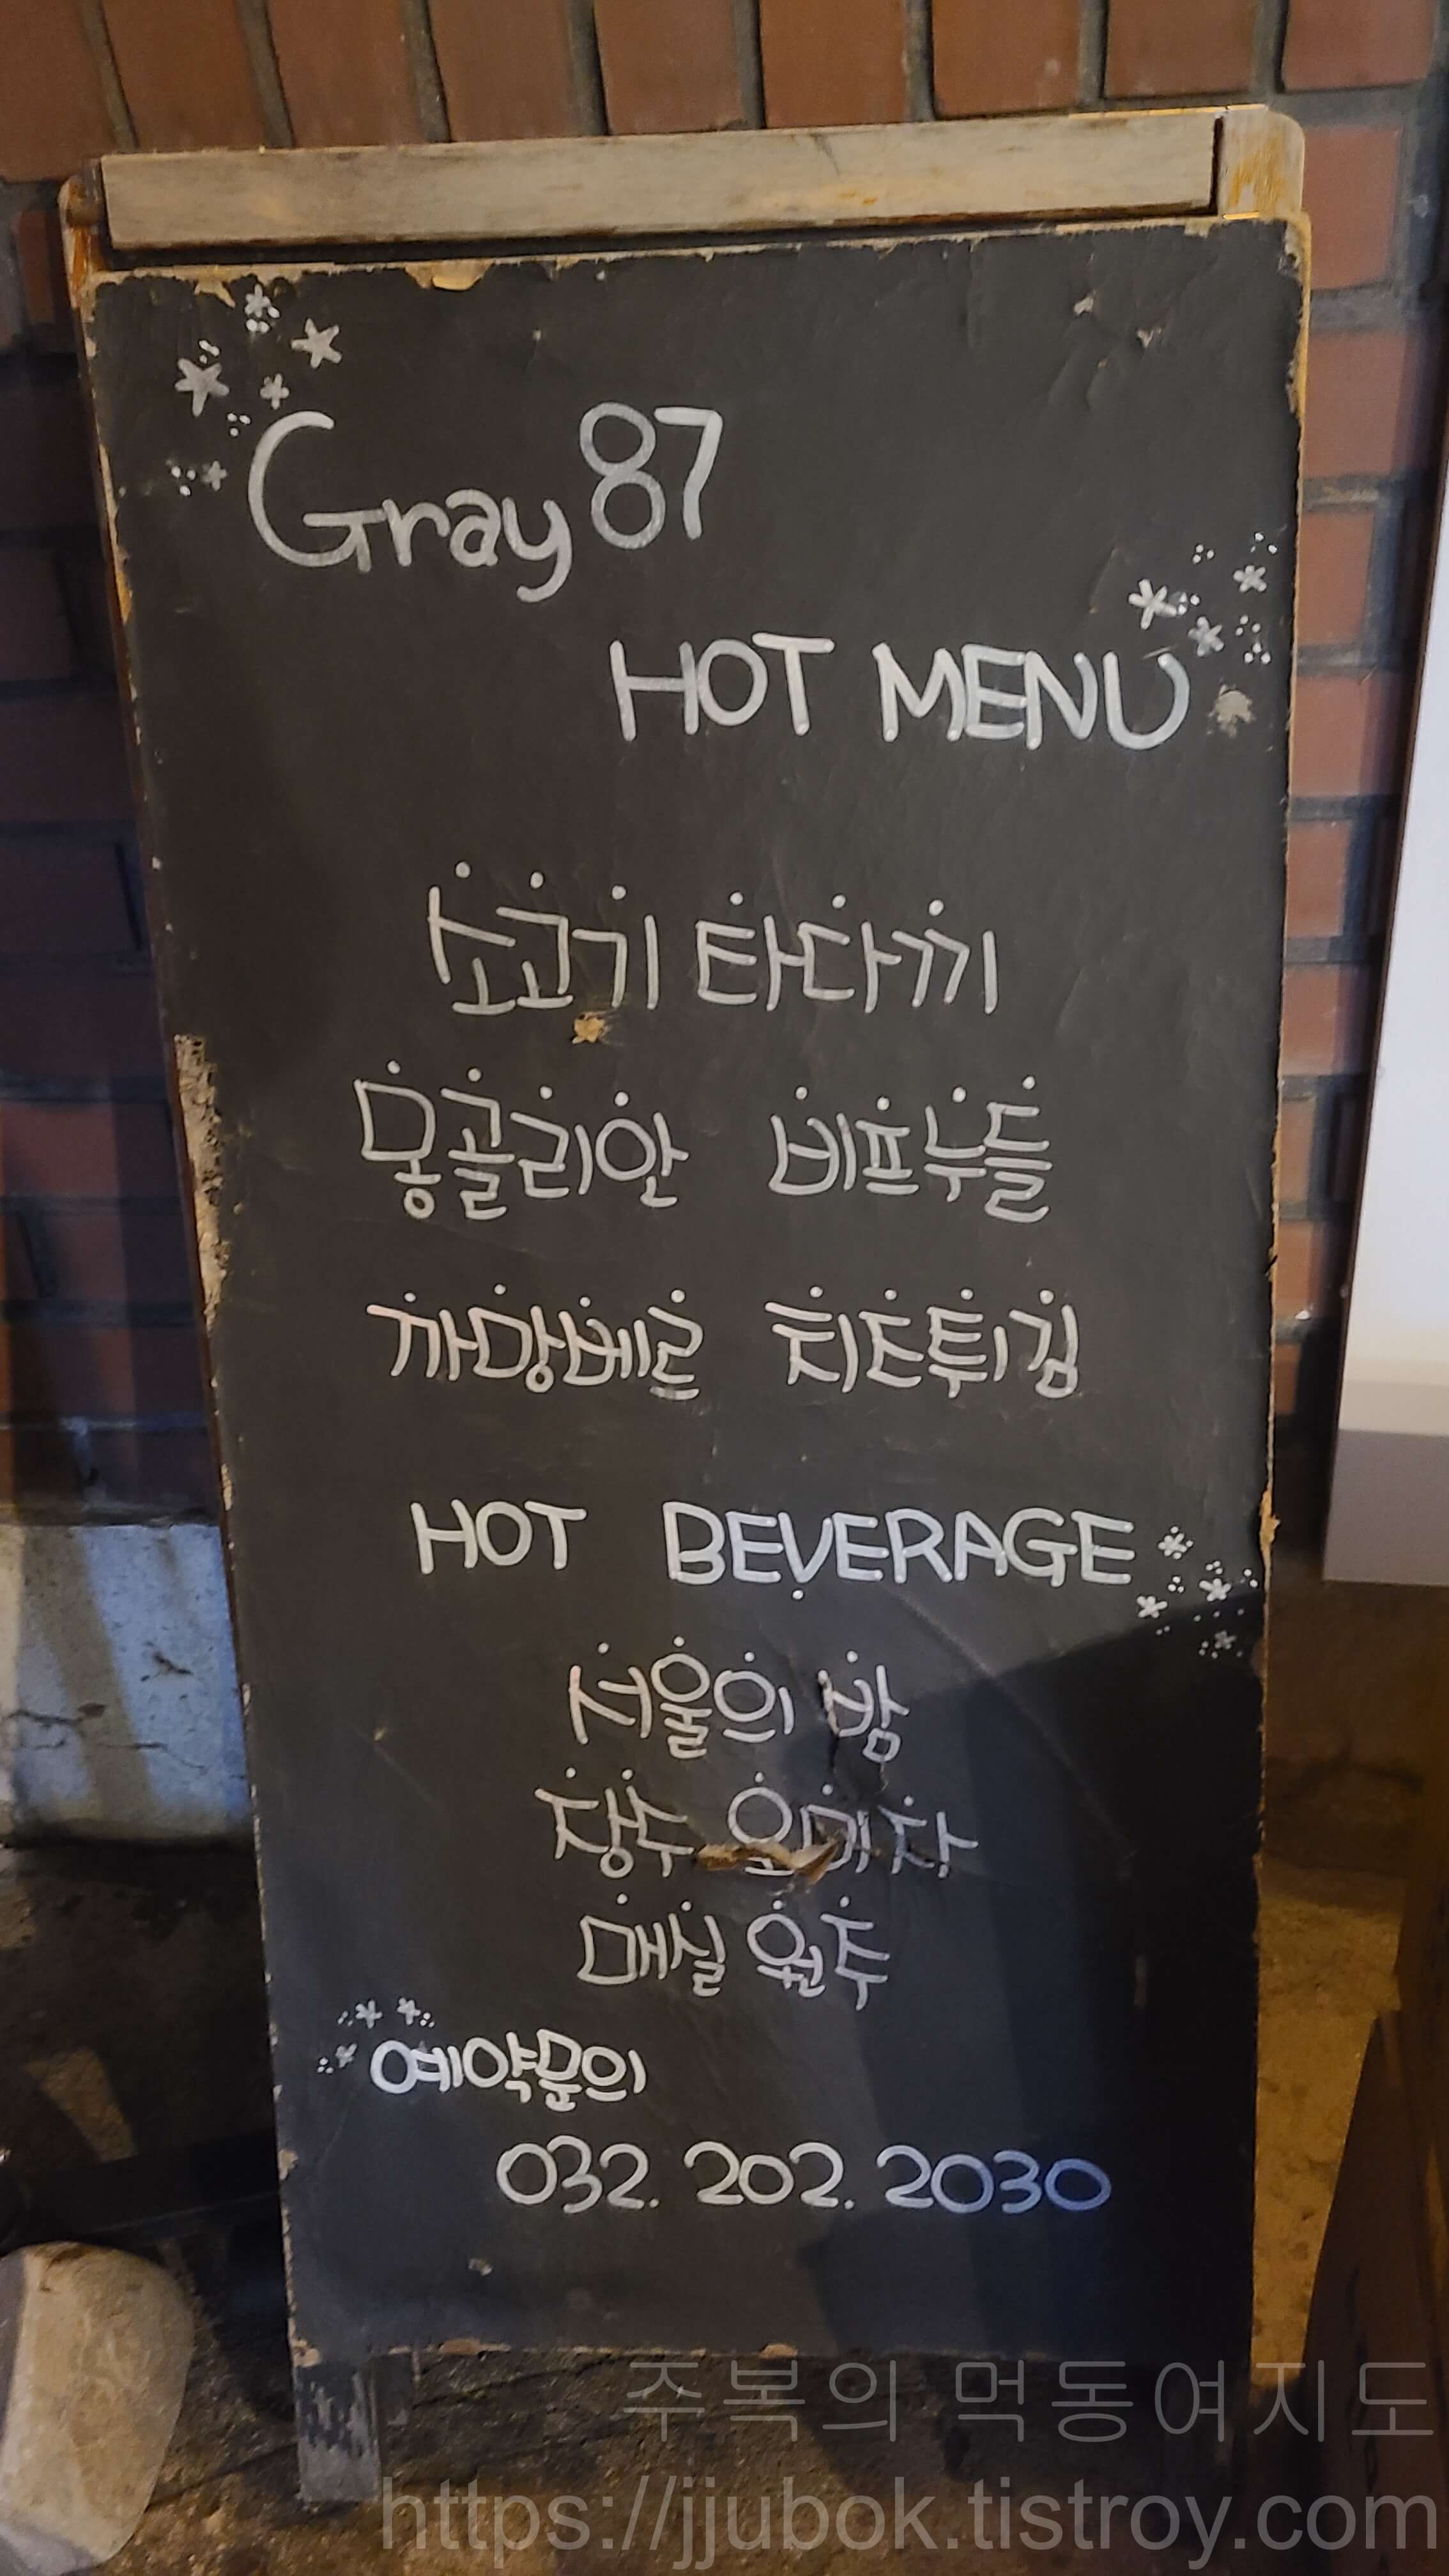 Gray 87
HOT MENU
소고기 타다끼
몽골리안 비프누들
까망베르 치즈튀김
HOT BEVERAGE
서울의 밤
장수 오미자
매실 원주
예약문의
032. 202. 2030
주복의 먹동여지도
https://jjubok.tistroy.com